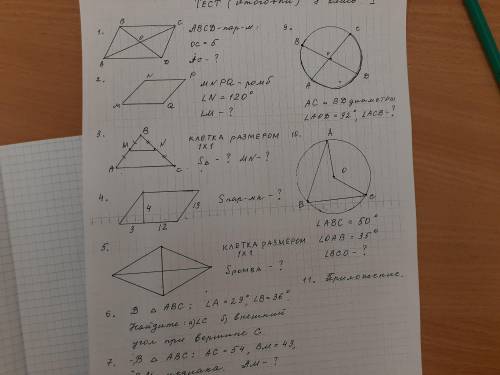 ТЕСТ (итоговый) 8 класс I
1.
B
C
O
A
D
ABCD-пар-м.
OC = 5
AC - ?
2.
N
P
M
Q
MNPQ - ромб
∠N = 120°
∠M - ?
3.
B
M
N
A
C
КЛЕТКА РАЗМЕРОМ
1X1
S△ - ? MN - ?
4.
4
13
3
12
Sпар-мм - ?
5.
КЛЕТКА РАЗМЕРОМ
1X1
Sромба - ?
6. В △ ABC: ∠A = 29°, ∠B = 36°
Найдите: а) ∠C б) внешний
угол при вершине C.
7. В △ ABC: AC = 54, BM = 43,
BM - ?
9.
B
C
A
D
AC и BD диаметры
∠AOD = 92°, ∠ACB - ?
10.
A
O
B
C
∠ABC = 50°
∠OAB = 35°
∠BCO - ?
11. Приложение.